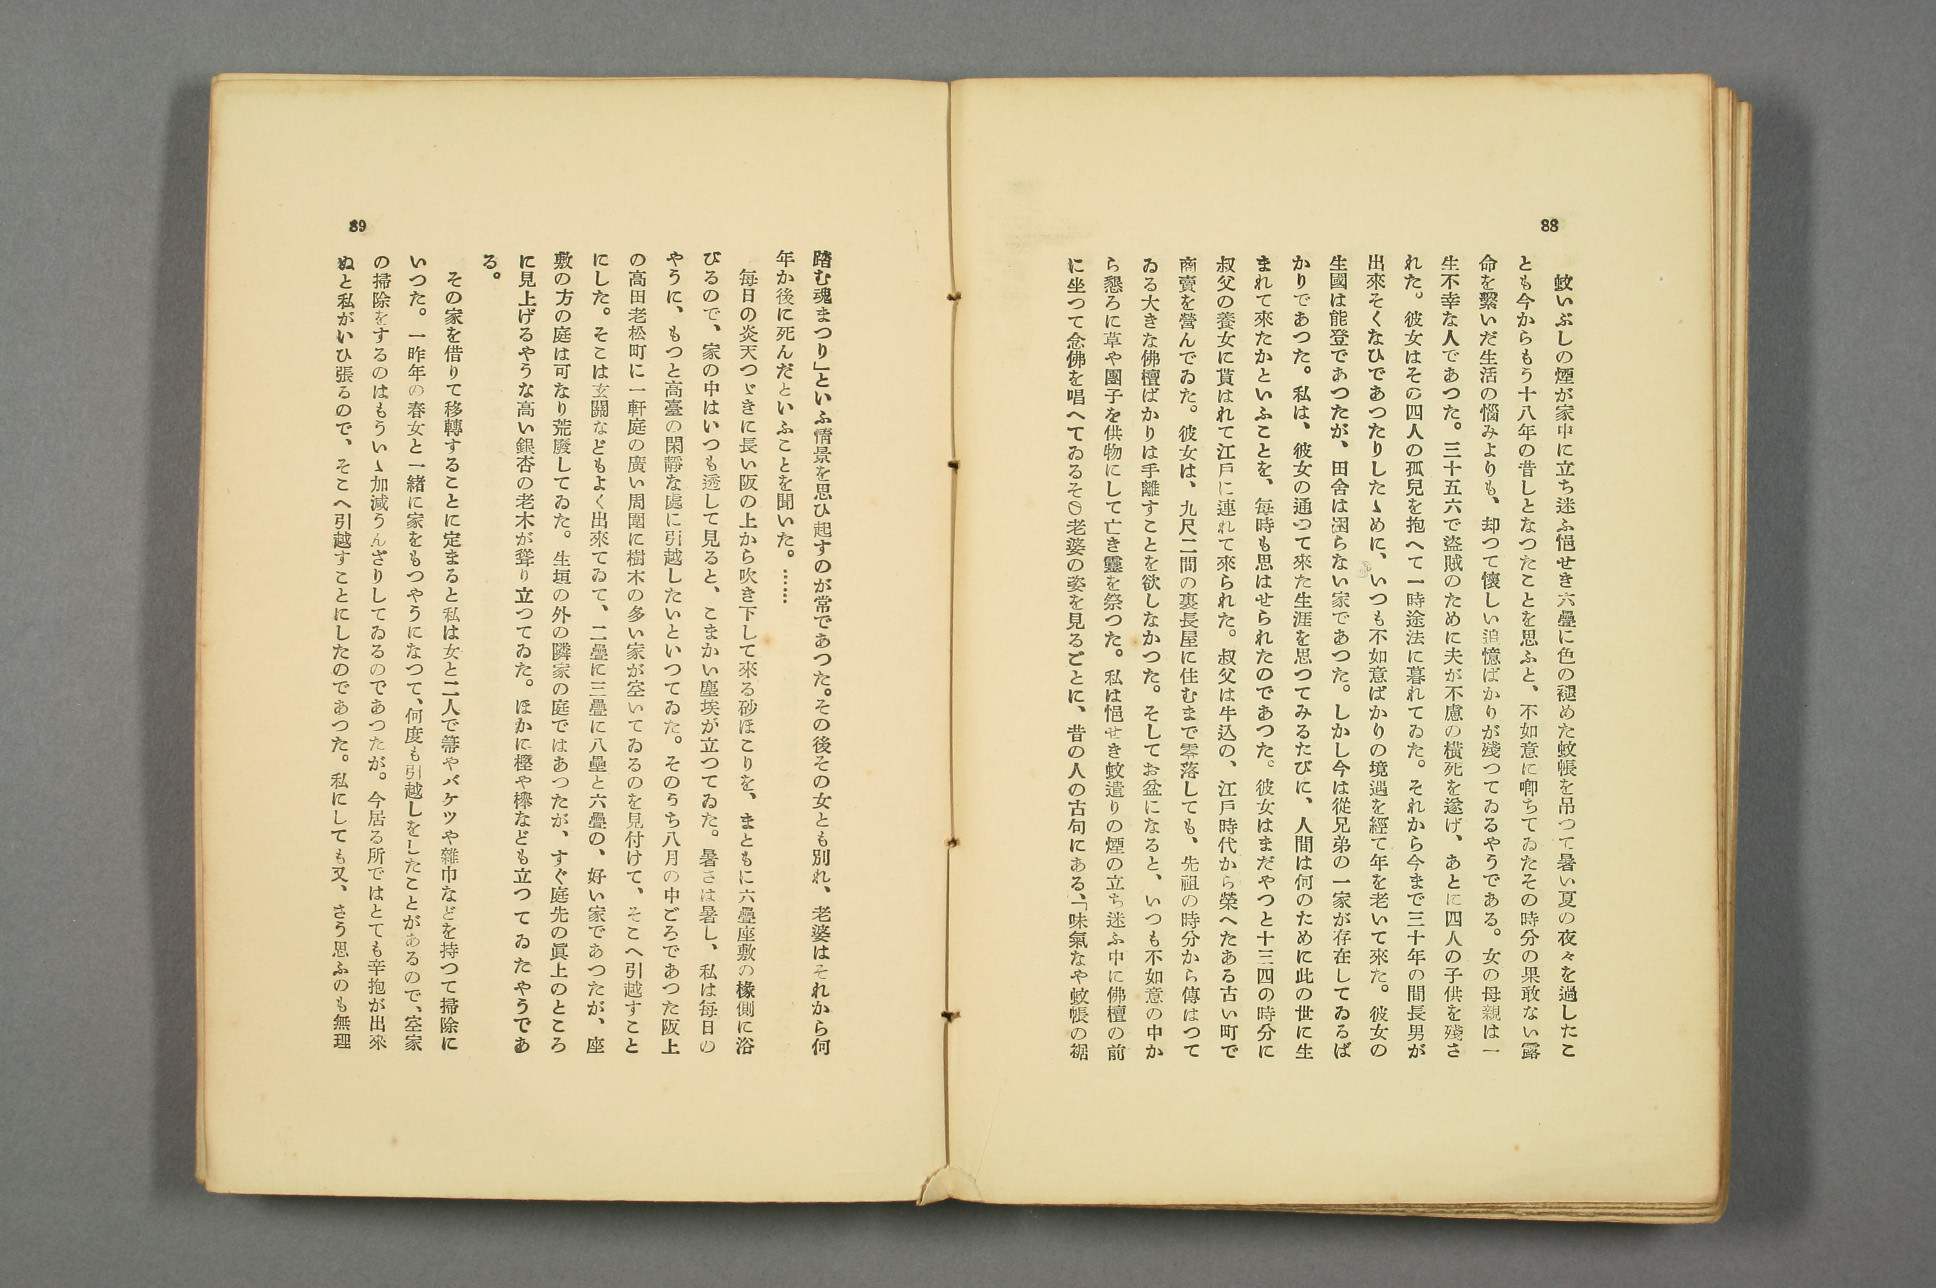 88
蚊いぶしの煙が家中に立ち迷ふ悒せき六疊に色の褪めた蚊帳を吊つて暑い夏の夜々を過したこ
とも今からもう十八年の昔しとなつたことを思ふと、不如意に喞ちてゐたその時分の果敢ない露
命を繋いだ生活の惱みよりも、却つて懷しい追憶ばかりが殘つてゐるやうである。女の母親は一
生不幸な人であつた。三十五六で盜賊のために夫が不慮の横死を遂げ、あとに四人の子供を殘さ
れた。彼女はその四人の孤兒を抱へて一時途法に暮れてゐた。それから今まで三十年の間長男が
出來そくなひであつたりしたゝめに、いつも不如意ばかりの境遇を經て年を老いて來た。彼女の
生國は能登であつたが、田舍は困らない家であつた。しかし今は從兄弟の一家が存在してゐるば
かりであつた。私は、彼女の通つて來た生涯を思つてみるたびに、人間は何のために此の世に生
まれて來たかといふことを、毎時も思はせられたのであつた。彼女はまだやつと十三四の時分に
叔父の養女に貰はれて江戸に連れて來られた。叔父は牛込の、江戸時代から榮へたある古い町で
商賣を營んでゐた。彼女は、九尺二間の裏長屋に住むまで零落しても、先祖の時分から傳はつて
ゐる大きな佛檀ばかりは手離すことを欲しなかつた。そしてお盆になると、いつも不如意の中か
ら懇ろに草や團子を供物にして亡き靈を祭つた。私は悒せき蚊遣りの煙の立ち迷ふ中に佛檀の前
に坐つて念佛を唱へてゐるその老婆の姿を見るごとに、昔の人の古句にある、「味氣なや蚊帳の裾
89
踏む魂まつり」といふ情景を思ひ起すのが常であつた。その後その女とも別れ、老婆はそれから何
年か後に死んだといふことを聞いた。……
毎日の炎天つゞきに長い阪の上から吹き下して來る砂ほこりを、まともに六疊座敷の椽側に浴
びるので、家の中はいつも透して見ると、こまかい塵埃が立つてゐた。暑さは暑し、私は毎日の
やうに、もつと高臺の閑靜な處に引越したいといつてゐた。そのうち八月の中ごろであつた阪上
の高田老松町に一軒庭の廣い周圍に樹木の多い家が空いてゐるのを見付けて、そこへ引越すこと
にした。そこは玄關などもよく出來てゐて、二疊に三疊に八疊と六疊の、好い家であつたが、座
敷の方の庭は可なり荒廢してゐた。生垣の外の隣家の庭ではあつたが、すぐ庭先の眞上のところ
に見上げるやうな高い銀杏の老木が聳り立つてゐた。ほかに樫や欅なども立つてゐたやうであ
る。
その家を借りて移轉することに定まると私は女と二人で箒やバケツや雜巾などを持つて掃除に
いつた。一昨年の春女と一緒に家をもつやうになつて、何度も引越しをしたことがあるので、空家
の掃除をするのはもういゝ加減うんざりしてゐるのであつたが。今居る所ではとても辛抱が出來
ぬと私がいひ張るので、そこへ引越すことにしたのであつた。私にしても又、さう思ふのも無理